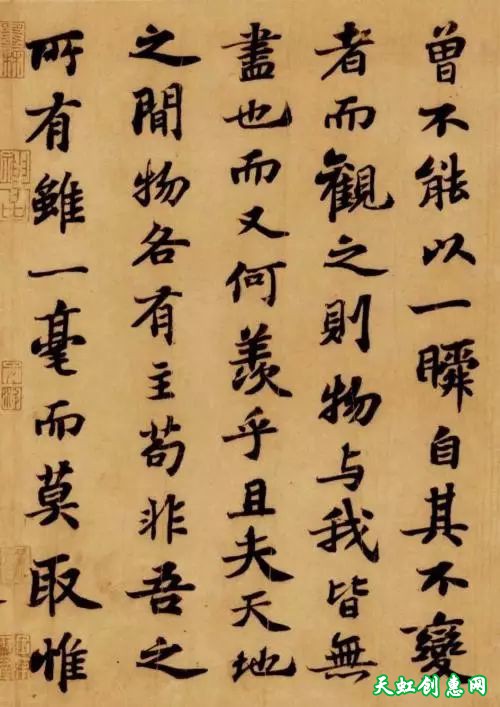 曾不能以一瞬自其不變
者而觀之則物与我皆無
盡也而又何羨乎且夫天地
之間物各有主苟非吾之
所有雖一毫而莫取惟
天虹创惠网